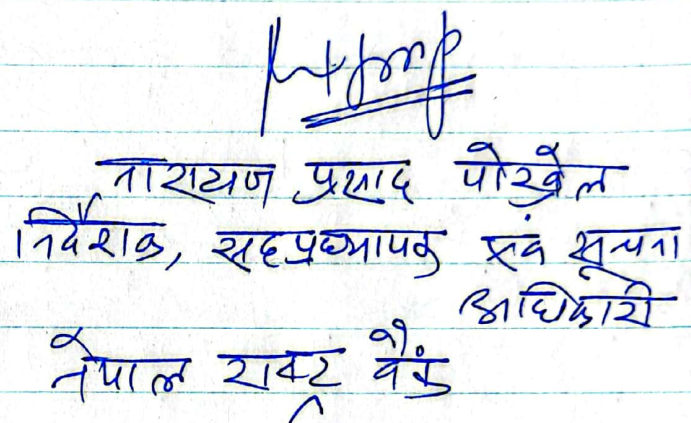 नारायण प्रसाद पोख्रेल
निर्देशक, सहप्रध्यापक एवं सूचना
अधिकारी
नेपाल राष्ट्र बैंक